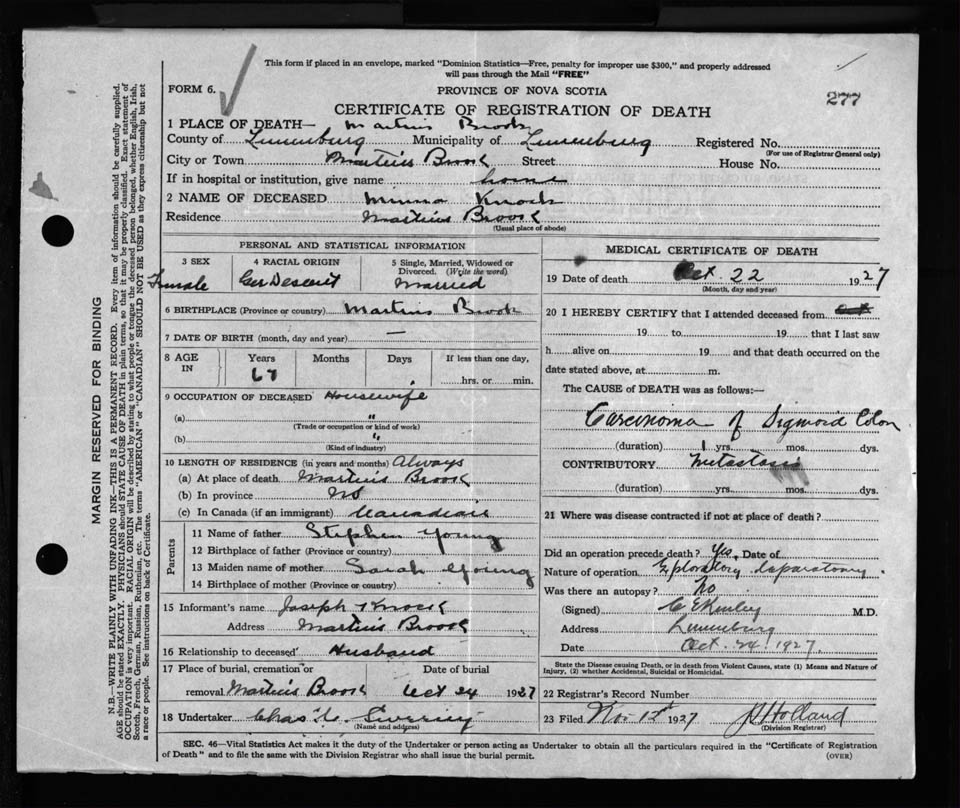 This form if placed in an envelope, marked "Dominion Statistics—Free, penalty for improper use $300," and properly addressed
will pass through the Mail "FREE"
FORM 6.
PROVINCE OF NOVA SCOTIA
277
CERTIFICATE OF REGISTRATION OF DEATH
1 PLACE OF DEATH— Martins Brook
County of Lunenburg Municipality of Lunenburg Registered No.
(For use of Registrar General only)
City or Town Martins Brook Street House No.
If in hospital or institution, give name home
2 NAME OF DECEASED Minna
Residence Martins Brook
(Usual place of abode)
PERSONAL AND STATISTICAL INFORMATION
3 SEX 4 RACIAL ORIGIN 5 Single, Married, Widowed or
Divorced. (Write the word)
Female Ger Descent Married
6 BIRTHPLACE (Province or country) Martins Brook
7 DATE OF BIRTH (month, day and year) —
8 AGE IN Years Months Days If less than one day,
67 hrs. or min.
9 OCCUPATION OF DECEASED Housewife
(a) "
(Trade or occupation or kind of work)
(b) "
(Kind of industry)
10 LENGTH OF RESIDENCE (in years and months) Always
(a) At place of death Martins Brook
(b) In province NS
(c) In Canada (if an immigrant) Canadian
Parents
11 Name of father Stephen Young
12 Birthplace of father (Province or country)
13 Maiden name of mother Sarah Young
14 Birthplace of mother (Province or country)
15 Informant's name Joseph
Address Martins Brook
16 Relationship to deceased Husband
17 Place of burial, cremation or Date of burial
removal Martins Brook Oct 24 1927
18 Undertaker Chas
(Name and address)
MEDICAL CERTIFICATE OF DEATH
19 Date of death Oct. 22 1927
(Month, day and year)
20 I HEREBY CERTIFY that I attended deceased from
19 to 19 that I last saw
h alive on 19 and that death occurred on the
date stated above, at m.
The CAUSE OF DEATH was as follows:—
Carcinoma of Sigmoid Colon
(duration) 1 yrs. mos. dys.
CONTRIBUTORY Metastasis
(duration) yrs. mos. dys.
21 Where was disease contracted if not at place of death?
Did an operation precede death? Yes. Date of
Nature of operation Exploratory laparatomy.
Was there an autopsy? No
(Signed) M.D.
Address Lunenburg
Date Oct. 24 1927.
State the Disease causing Death, or in death from Violent Causes, state (1) Means and Nature of
Injury, (2) whether Accidental, Suicidal or Homicidal.
22 Registrar's Record Number
23 Filed Nov 12 1927 Holland
(Division Registrar)
SEC. 46—Vital Statistics Act makes it the duty of the Undertaker or person acting as Undertaker to obtain all the particulars required in the "Certificate of Registration
of Death" and to file the same with the Division Registrar who shall issue the burial permit. (OVER)
MARGIN RESERVED FOR BINDING
N.B.—WRITE PLAINLY WITH UNFADING INK—THIS IS A PERMANENT RECORD. Every item of information should be carefully supplied.
AGE should be stated EXACTLY. PHYSICIANS should STATE CAUSE OF DEATH in plain terms, so that it may be properly classified. Exact statement of
OCCUPATION is very important. RACIAL ORIGIN will be described by stating to what people or tongue the deceased person belonged, whether English, Irish,
Scotch, French, German, Russian, Ruthenian, etc. The terms "AMERICAN" or "CANADIAN" SHOULD NOT BE USED as they express citizenship but not
a race or people. See instructions on back of Certificate.